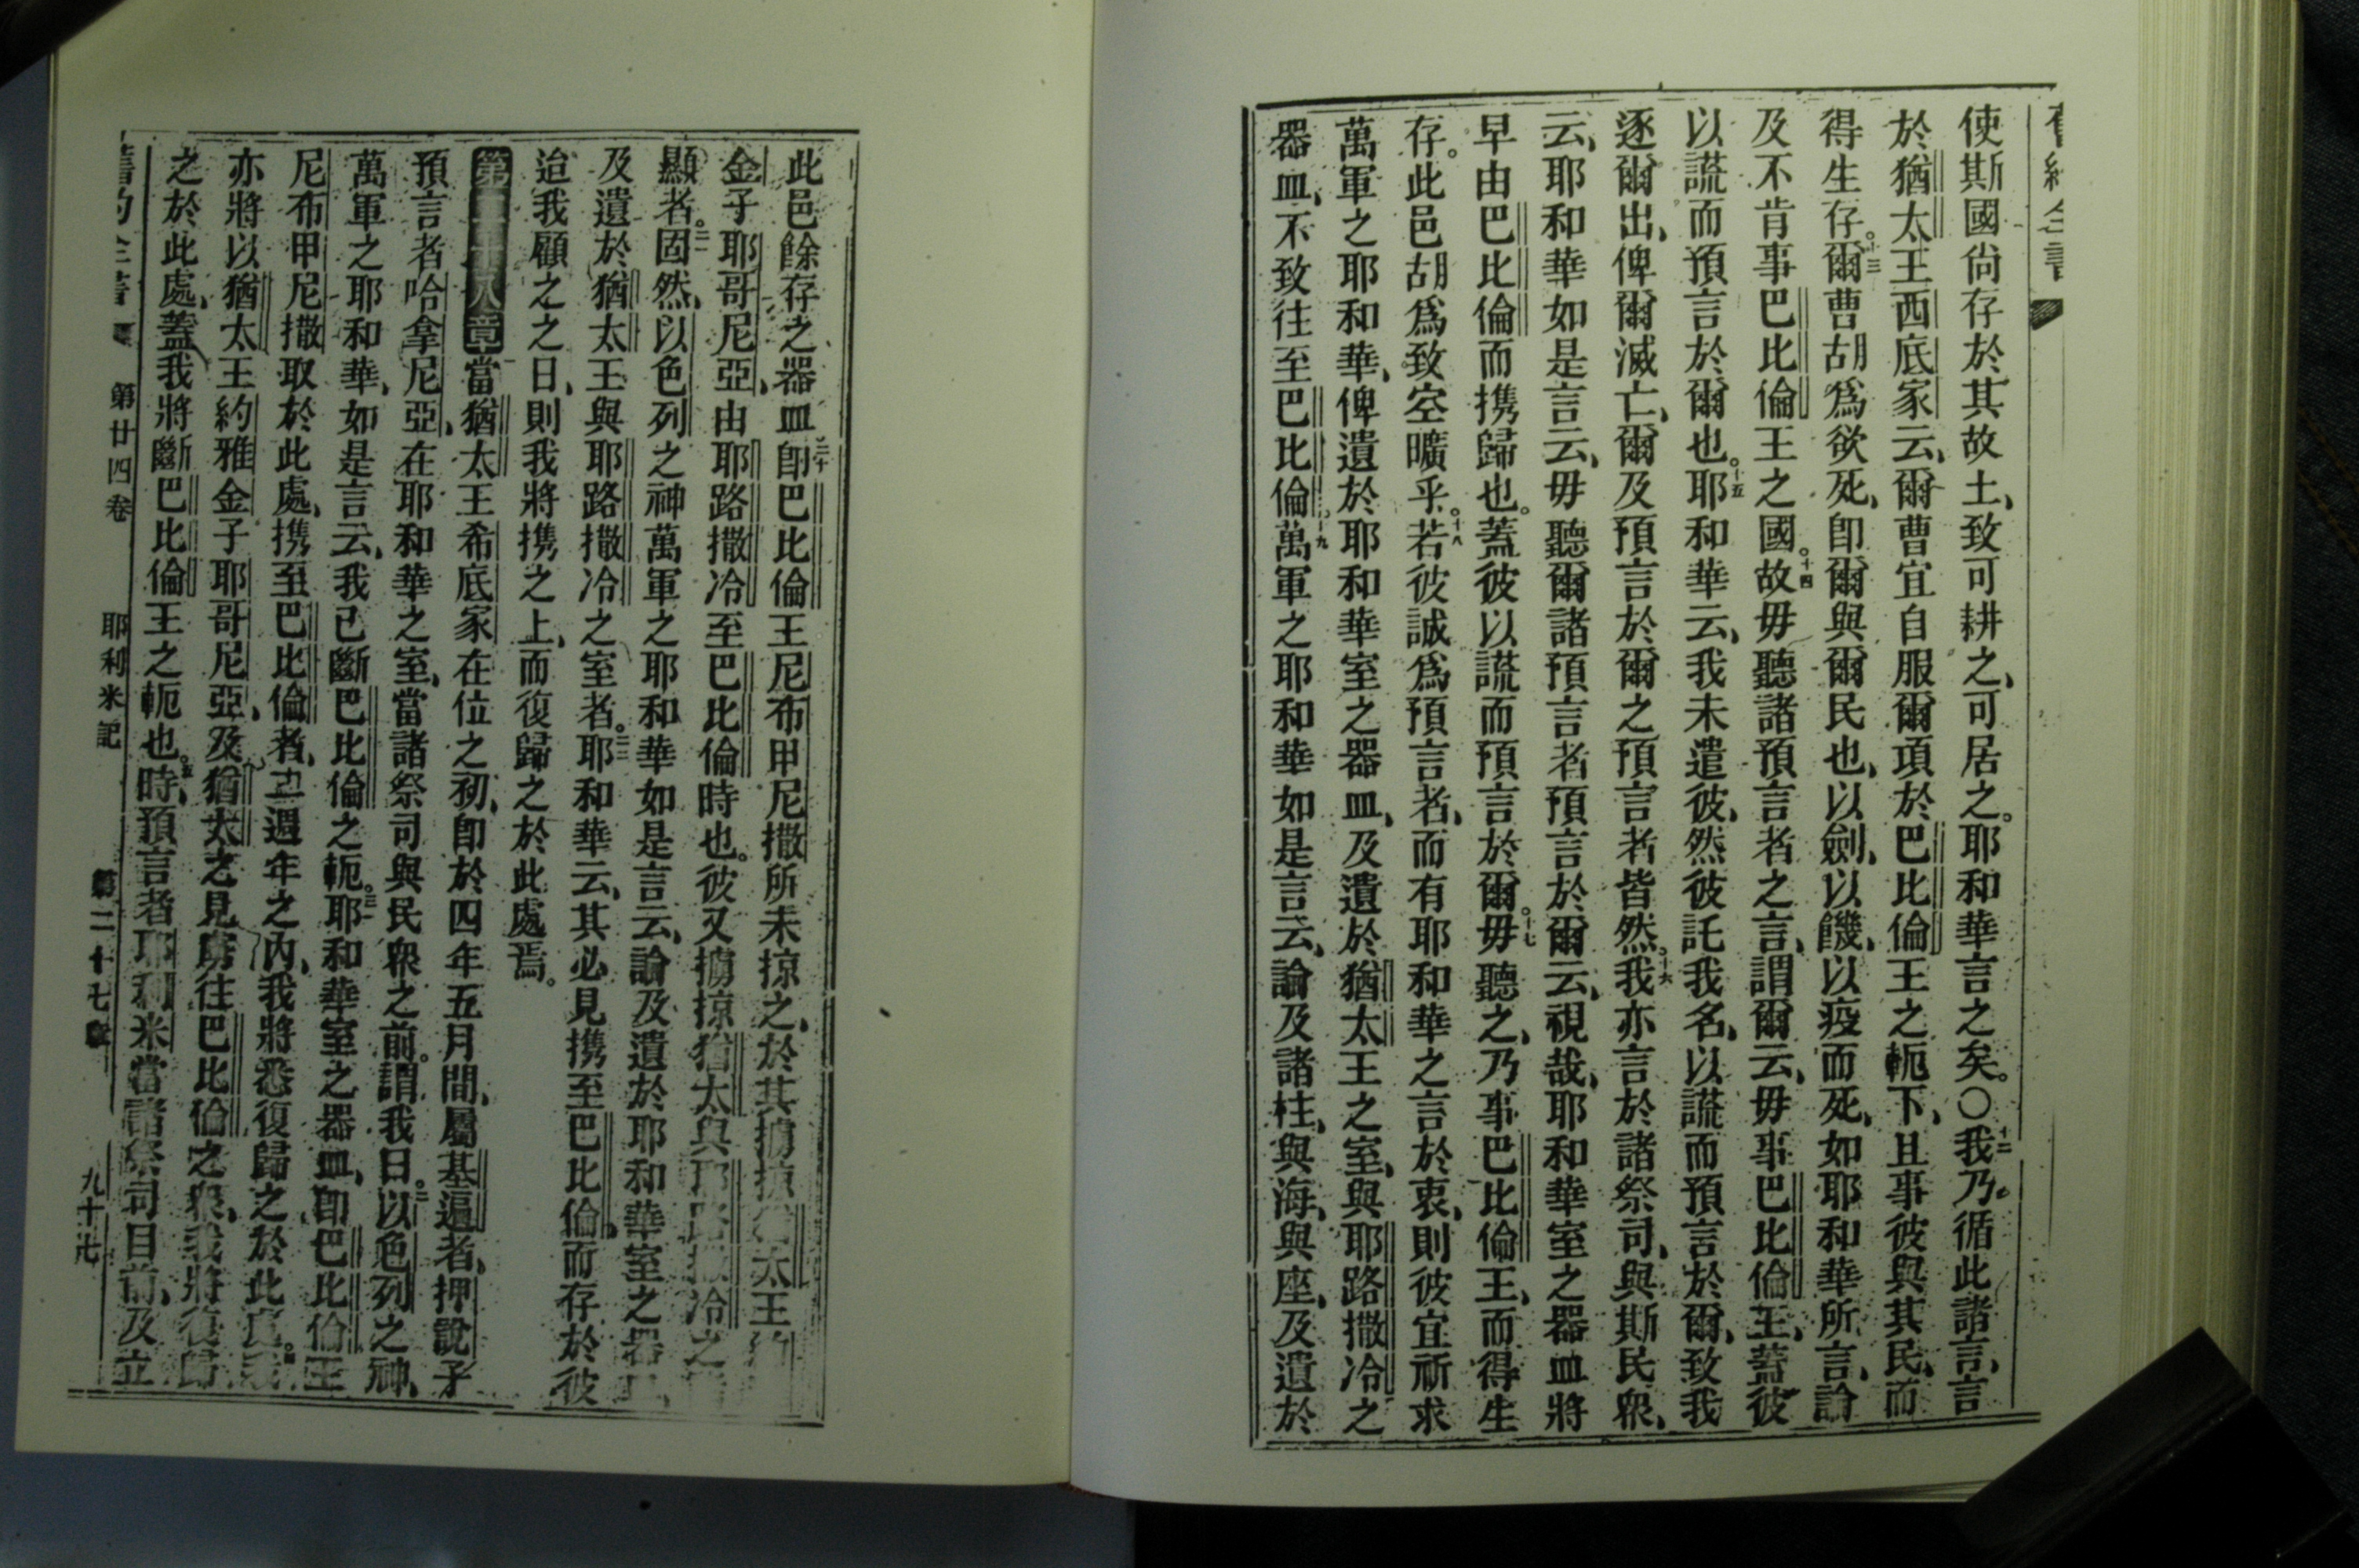 使斯國尙存於其故土、致可耕之、可居之。耶和華言之矣。〇十二我乃循此諸言、言
於猶太王西底家云、爾曹宜自服爾項於巴比倫王之軛下、且事彼與其民、而
得生存。十三爾曹胡爲欲死、卽爾與爾民也、以劍、以饑、以疫而死、如耶和華所言、論
及不肯事巴比倫王之國。十四故毋聽諸預言者之言、謂爾云、毋事巴比倫王、蓋彼
以謊而預言於爾也。十五耶和華云、我未遣彼、然彼託我名、以謊而預言於爾、致我
逐爾出、俾爾滅亡、爾及預言於爾之預言者皆然。十六我亦言於諸祭司、與斯民衆、
云、耶和華如是言云、毋聽爾諸預言者預言於爾云、視哉、耶和華室之器皿將
早由巴比倫而携歸也。蓋彼以謊而預言於爾。十七毋聽之、乃事巴比倫王、而得生
存。此邑胡爲致空曠乎。十八若彼誠爲預言者、而有耶和華之言於衷、則彼宜祈求
萬軍之耶和華、俾遺於耶和華室之器皿、及遺於猶太王之室、與耶路撒冷之
器皿、不致往至巴比倫。十九萬軍之耶和華如是言云、論及諸柱、與海、與座、及遺於
此邑餘存之器皿二十卽巴比倫王尼布甲尼撒所未掠之、於其擄掠猶太王
金子耶哥尼亞、由耶路撒冷至巴比倫時也。彼又擄掠猶太與耶路撒冷之
顯者。二一固然、以色列之神萬軍之耶和華如是言云、論及遺於耶和華室之器
及遺於猶太王與耶路撒冷之室者。二二耶和華云、其必見携至巴比倫、而存於彼
迨我顧之之日、則我將携之上、而復歸之於此處焉。
第二十八章當猶太王希底家在位之初、卽於四年五月間、屬基遍者、押說子
預言者哈拿尼亞、在耶和華之室、當諸祭司與民衆之前。謂我曰。二以色列之神、
萬軍之耶和華、如是言云、我已斷巴比倫之軛。三耶和華室之器皿、卽巴比倫王
尼布甲尼撒取於此處、携至巴比倫者、二週年之內、我將悉復歸之於此處。四我
亦將以猶太王約雅金子耶哥尼亞、及猶太之見虜往巴比倫之衆、我將復歸
之於此處、蓋我將斷巴比倫王之軛也。五時、預言者耶利米當諸祭司目前、及立
第廿四卷 耶利米記 第二十七章 九十七